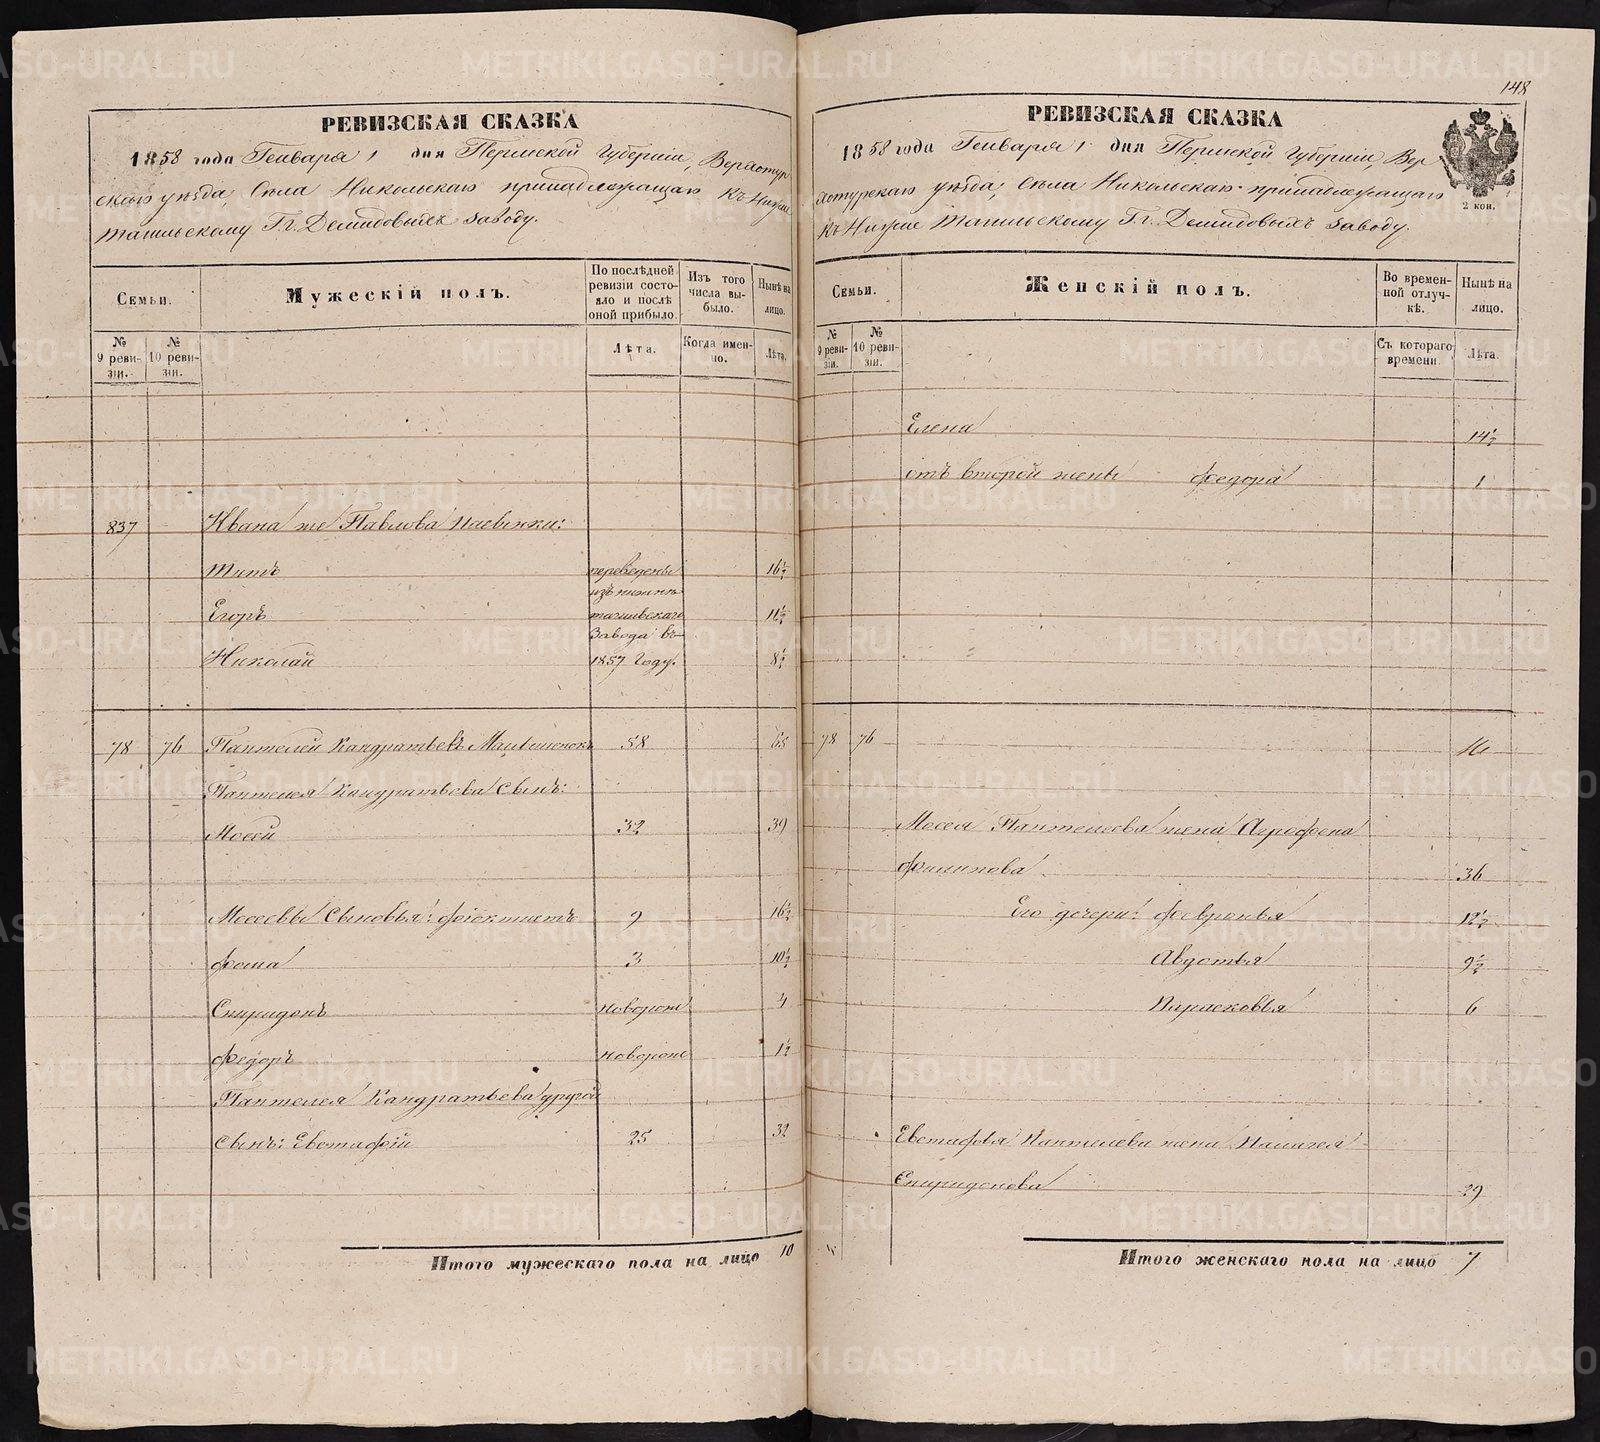 148
РЕВИЗСКАЯ СКАЗКА
1858 года Генваря 1 дня Пермской Губерніи, Верхотур
скаго уѣзда, Села Никольскаго принадлежащаго къ Нижне
Тагильскому Гг. Демидовыхъ заводу.
Семьи.
№ 9 ревизіи.
№ 10 ревизіи.
Мужескій полъ.
По послѣдней
ревизіи состо-
яло и послѣ
оной прибыло.
Лѣта.
Изъ того
числа вы-
было.
Когда имен-
но.
Нынѣ на
лицо.
Лѣта.
837 Ивана же Павлова пасынки:
Титъ переведены 16½
изъ нижне
Егоръ тагильскаго 11½
завода въ
Николай 1857 году. 8½
78 76 Пантелей Кандратьевъ 58 65
Пантелея Кандратьева сынъ:
Мосей 32 39
Мосеевы сыновья: Феоктистъ 9 16½
Фома 3 10½
Спиридонъ новорож 4
Федоръ новорож 1½
Пантелея Кандратьева другой
сынъ: Евстафій 25 32
Итого мужескаго пола на лицо 10
РЕВИЗСКАЯ СКАЗКА
1858 года Генваря 1 дня Пермской Губерніи, Вер
хотурскаго уѣзда, Села Никольскаго принадлежащаго
къ Нижне Тагильскому Гг. Демидовыхъ заводу.
2 кон.
Семьи.
№
9 реви-
зіи.
№
10 реви-
зіи.
Женскій полъ.
Во времен-
ной отлуч-
кѣ.
Съ котораго
времени.
Нынѣ на
лицо.
Лѣта.
Елена 14½
отъ второй жены Федора 1
78 76
Мосея Пантелеева жена Агрофена
Филипова 36
Его дочери: Февронья 12½
Авдотья 9½
Парасковья 6
Евстафья Пантелева жена Палагея
Спиридонова 29
Итого женскаго пола на лицо 7
METRIKI.GASO-URAL.RU